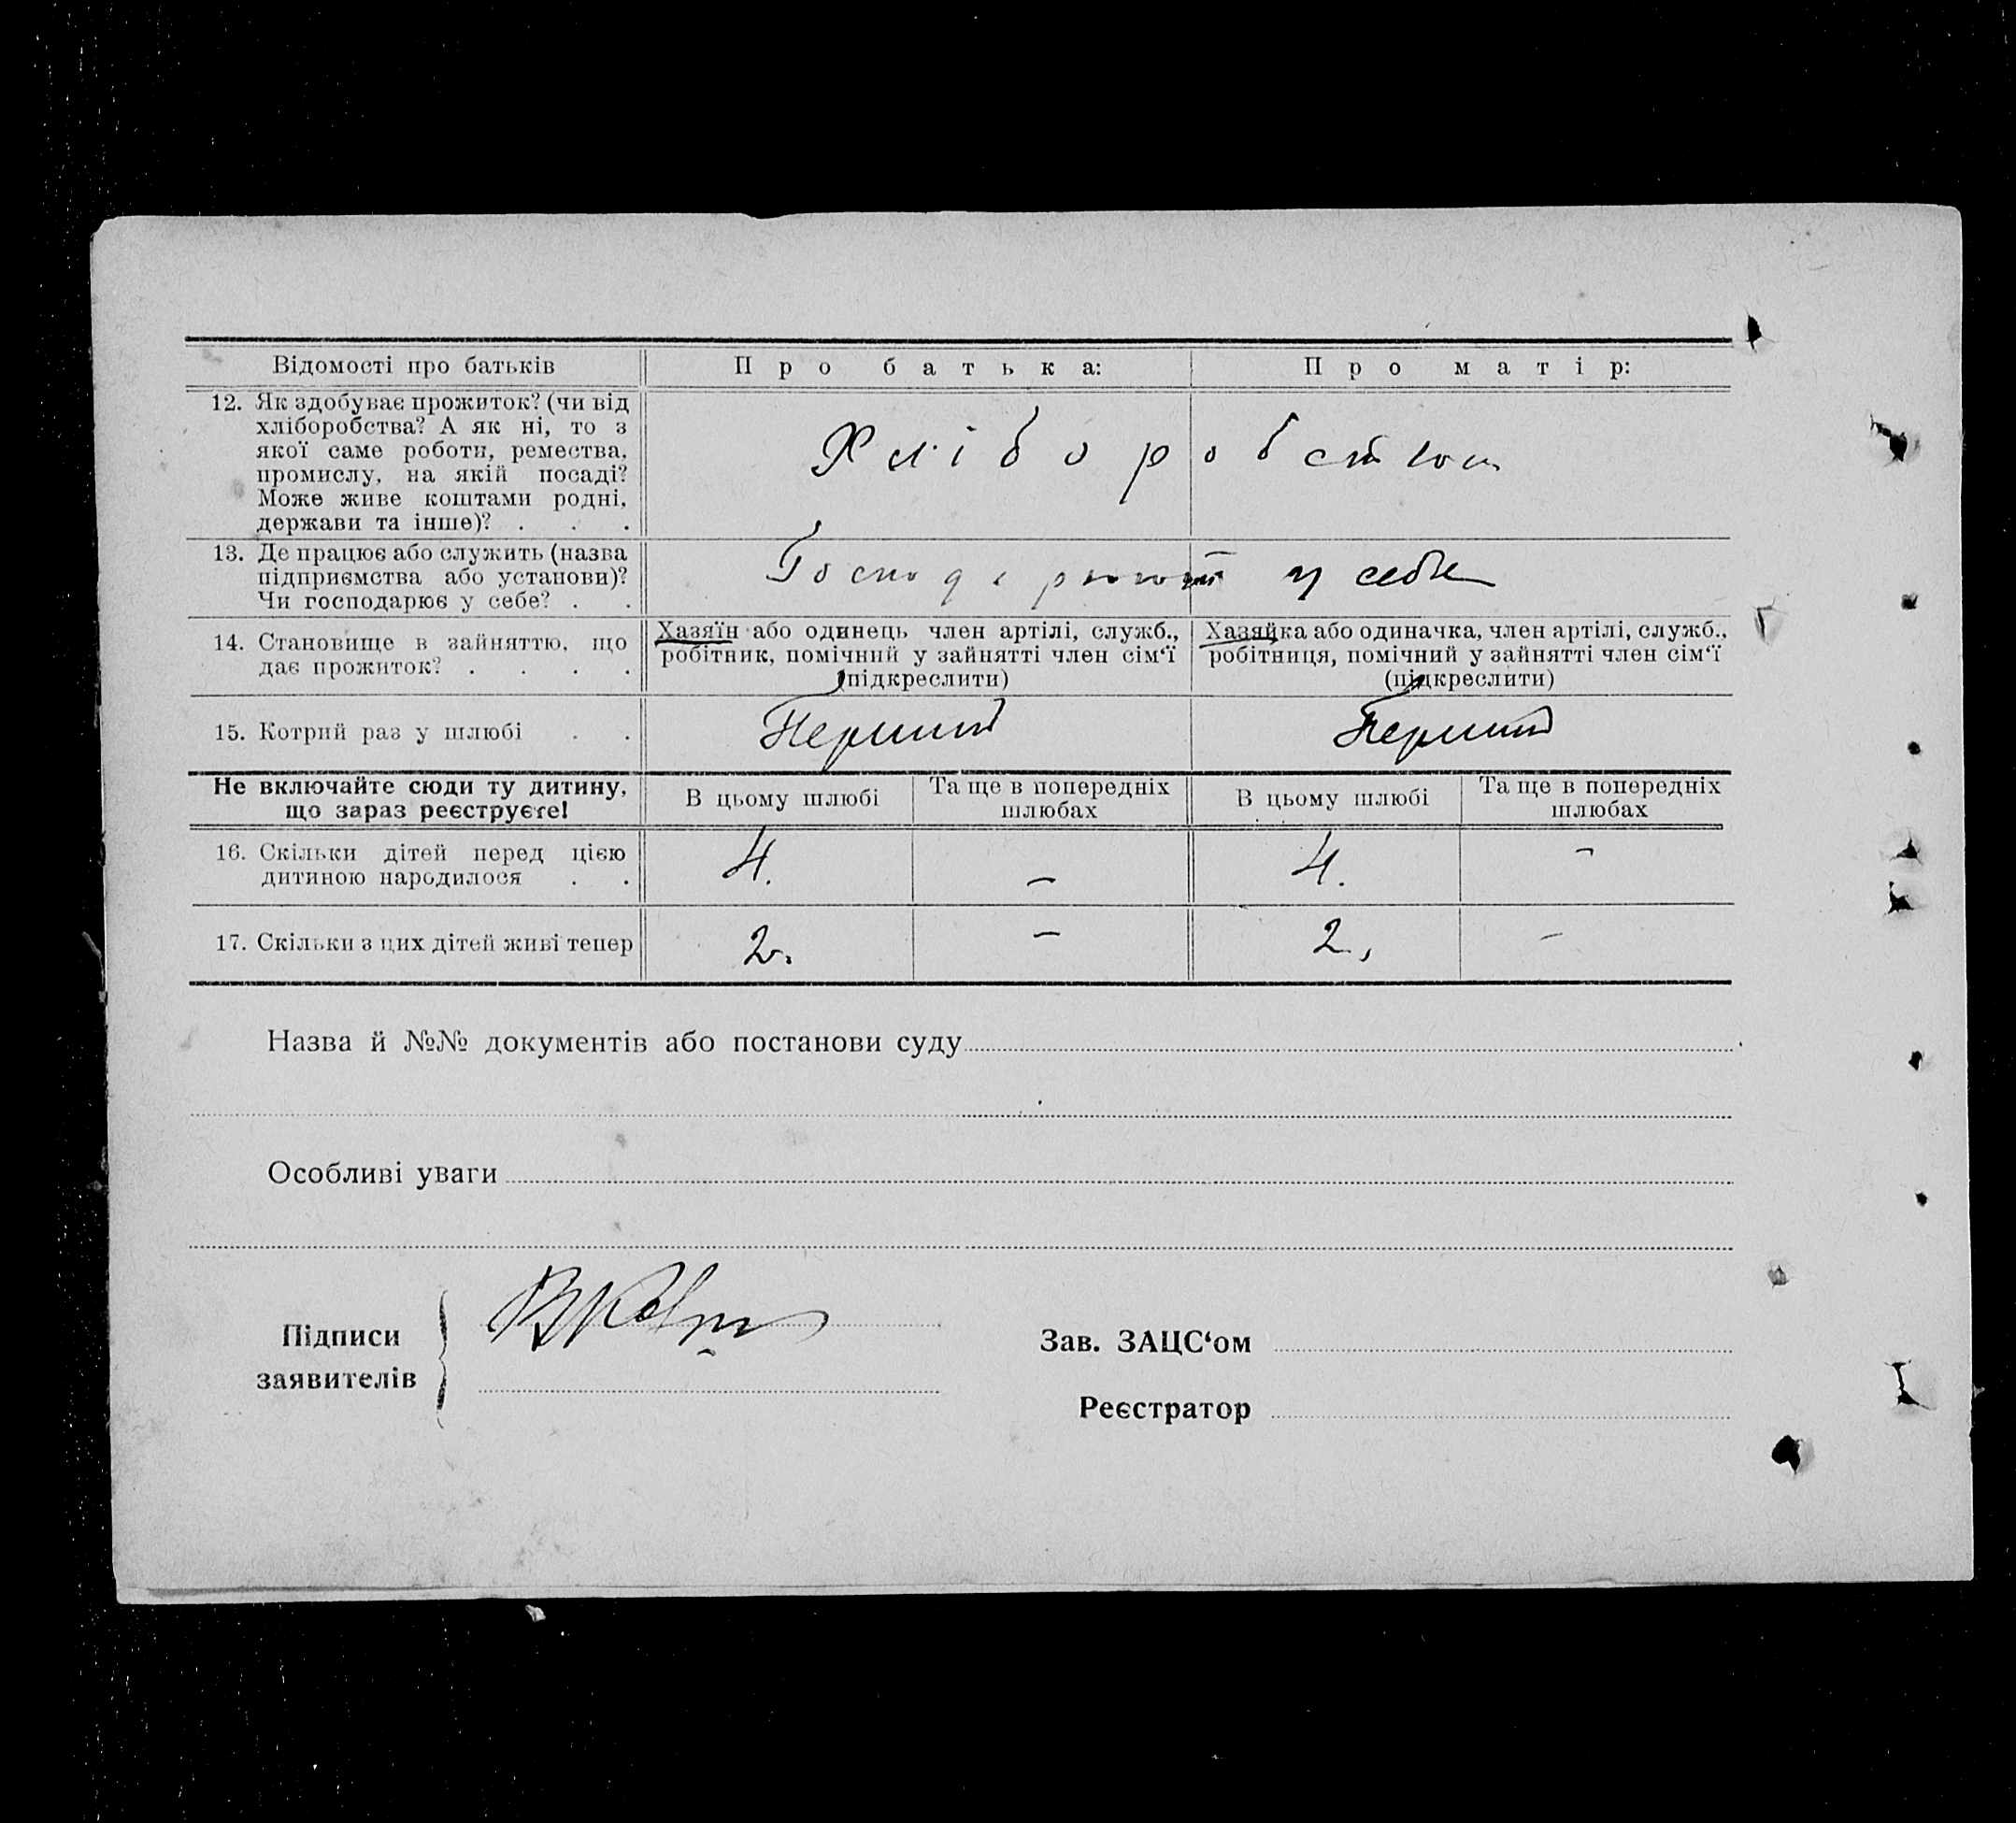 Відомості про батьків
Про батька:
Про матір:
12. Як здобуває прожиток? (чи від
хліборобства? А як ні, то з
якої саме роботи, ремества,
промислу, на якій посаді?
Може живе коштами родні,
держави та інше)? . . .
Хліборобством
13. Де працює або служить (назва
підприємства або установи)?
Чи господарює у себе? . .
Господарюють у себе
14. Становище в зайняттю, що
дає прожиток? . . . .
Хазяїн або одинець член артілі, служб.,
робітник, помічний у зайнятті член сім‘ї
(підкреслити)
Хазяйка або одиначка, член артілі, служб.,
робітниця, помічний у зайнятті член сім‘ї
(підкреслити)
15. Котрий раз у шлюбі . .
Перший
Перший
Не включайте сюди ту дитину,
що зараз реєструєте!
В цьому шлюбі
Та ще в попередніх
шлюбах
В цьому шлюбі
Та ще в попередніх
шлюбах
16. Скільки дітей перед цією
дитиною народилося . .
4. – 4. –
17. Скільки з цих дітей живі тепер
2. – 2, –
Назва й №№ документів або постанови суду
Особливі уваги
Підписи
заявителів
Зав. ЗАЦС‘ом
Реєстратор